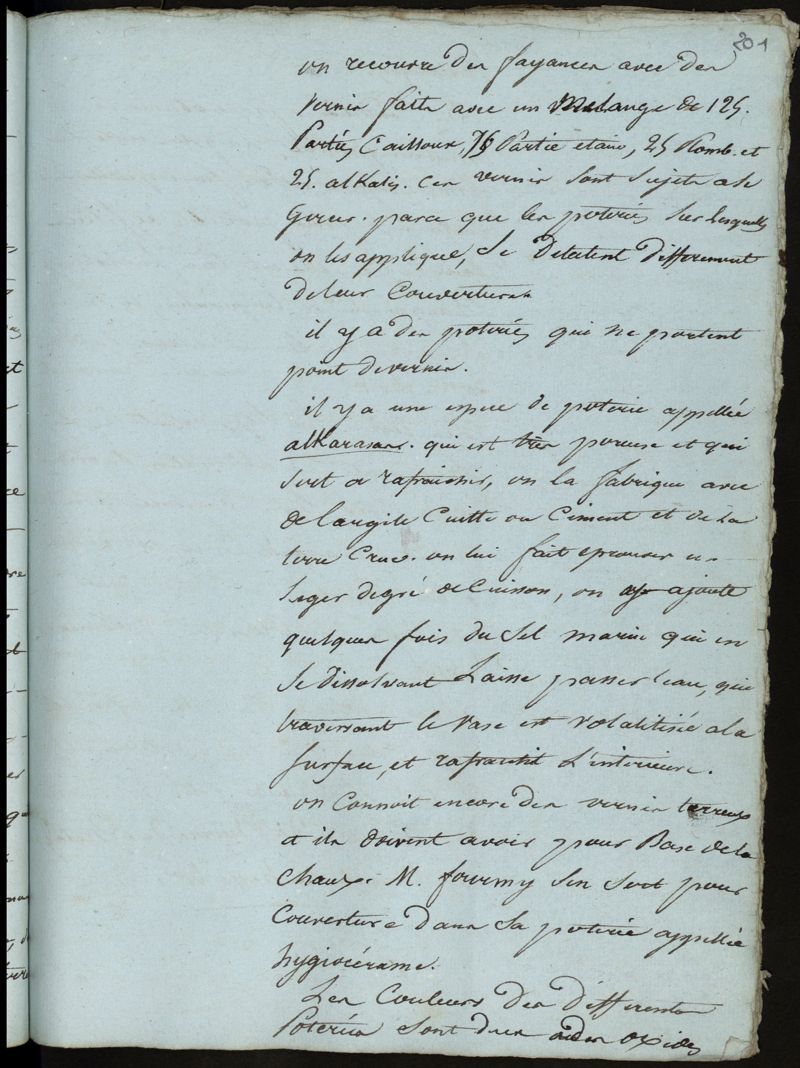 201
on recouvre des fayances avec des
vernis faits avec un Melange de 125.
Parties Cailloux, 75 Partie etain, 25 Plomb. et
25. alKalis. Ces vernis sont sujets a se
Gercer. parce que les poteries sur lesquelles
on les applique, se Delatent Differement
de leur Couvertures
il y a des poteries qui ne portent
point de vernis.
il y a une espece de poterie appellée
alKarasas. qui est très poreuse et qui
sert a rafraichir, on la fabrique avec
de l'argile Cuitte ou Ciment et de la
terre Crue. on lui fait eprouver un
Leger degré de Cuisson, on ajoute
quelques fois du Sel marin qui en
se dissolvant Laisse passer l'eau, qui
traversant le vase est volatilisée a la
surface, et rafraichit L'interieure.
on Connoit encore des vernis terreux
et ils doivent avoir pour Base de la
Chaux. M. fourmy s'en sert pour
Couverture dans sa poterie appellée
hygiocérame.
Les Couleurs des differentes
Poteries sont dues a des oxides